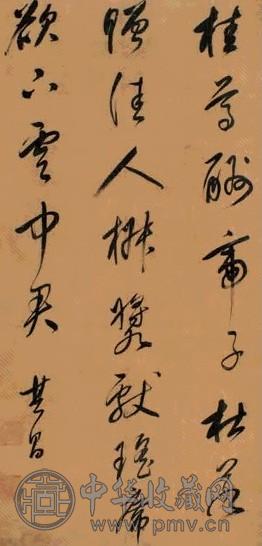 桂尊酬帝子杜若
贈佳人椒漿獻瑤席
欲下雲中君 其昌
中华收藏网
www.pmv.cn